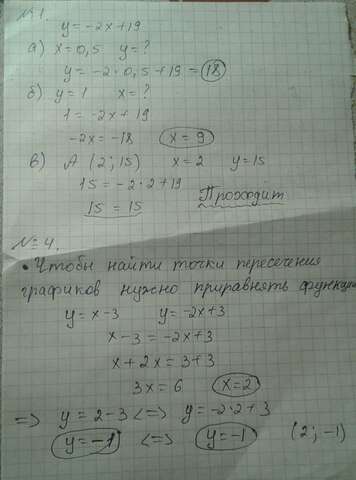 №1.
y = -2x+19
а) x=0,5 y=?
y = -2·0,5+19 = 18
б) y=1 x=?
1 = -2x+19
-2x = -18 x = 9
в) A (2; 15) x=2 y=15
15 = -2·2+19
15 = 15 Проходит
№4.
• Чтобы найти точки пересечения
графиков нужно приравнять функции
y = x-3 y = -2x+3
x-3 = -2x+3
x+2x = 3+3
3x = 6 x=2
=> y = 2-3 <=> y = -2·2+3
y = -1 <=> y = -1 (2; -1)